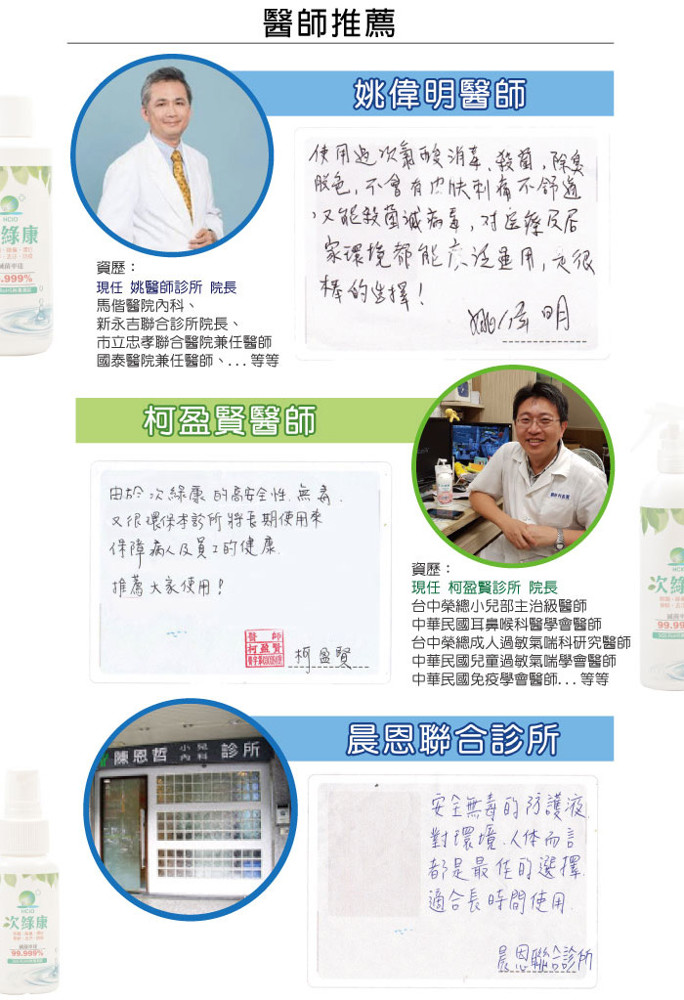 醫師推薦
姚偉明醫師
使用過次氯酸消毒、殺菌,除臭
脫色,不會有皮肤刺痛不舒適
,又能殺菌滅病毒,對医療及居
家環境都能广泛運用,是很
棒的選擇!
姚偉明
資歷:
現任 姚醫師診所 院長
馬偕醫院內科、
新永吉聯合診所院長、
市立忠孝聯合醫院兼任醫師
國泰醫院兼任醫師、...等等
HClO
綠康
.999%
柯盈賢醫師
由於次綠康的高安全性、無毒、
又很環保本診所將長期使用來
保障病人及員工的健康.
推薦大家使用!
醫師
柯盈賢
柯盈賢
資歷:
現任 柯盈賢診所 院長
台中榮總小兒部主治級醫師
中華民國耳鼻喉科醫學會醫師
台中榮總成人過敏氣喘科研究醫師
中華民國兒童過敏氣喘學會醫師
中華民國免疫學會醫師...等等
HClO
次綠
99.99
晨恩聯合診所
陳恩哲 小兒內科 診所
安全無毒的防護液.
對環境.人体而言
都是最佳的選擇.
適合長時間使用.
晨恩聯合診所
HClO
次綠康
99.999%